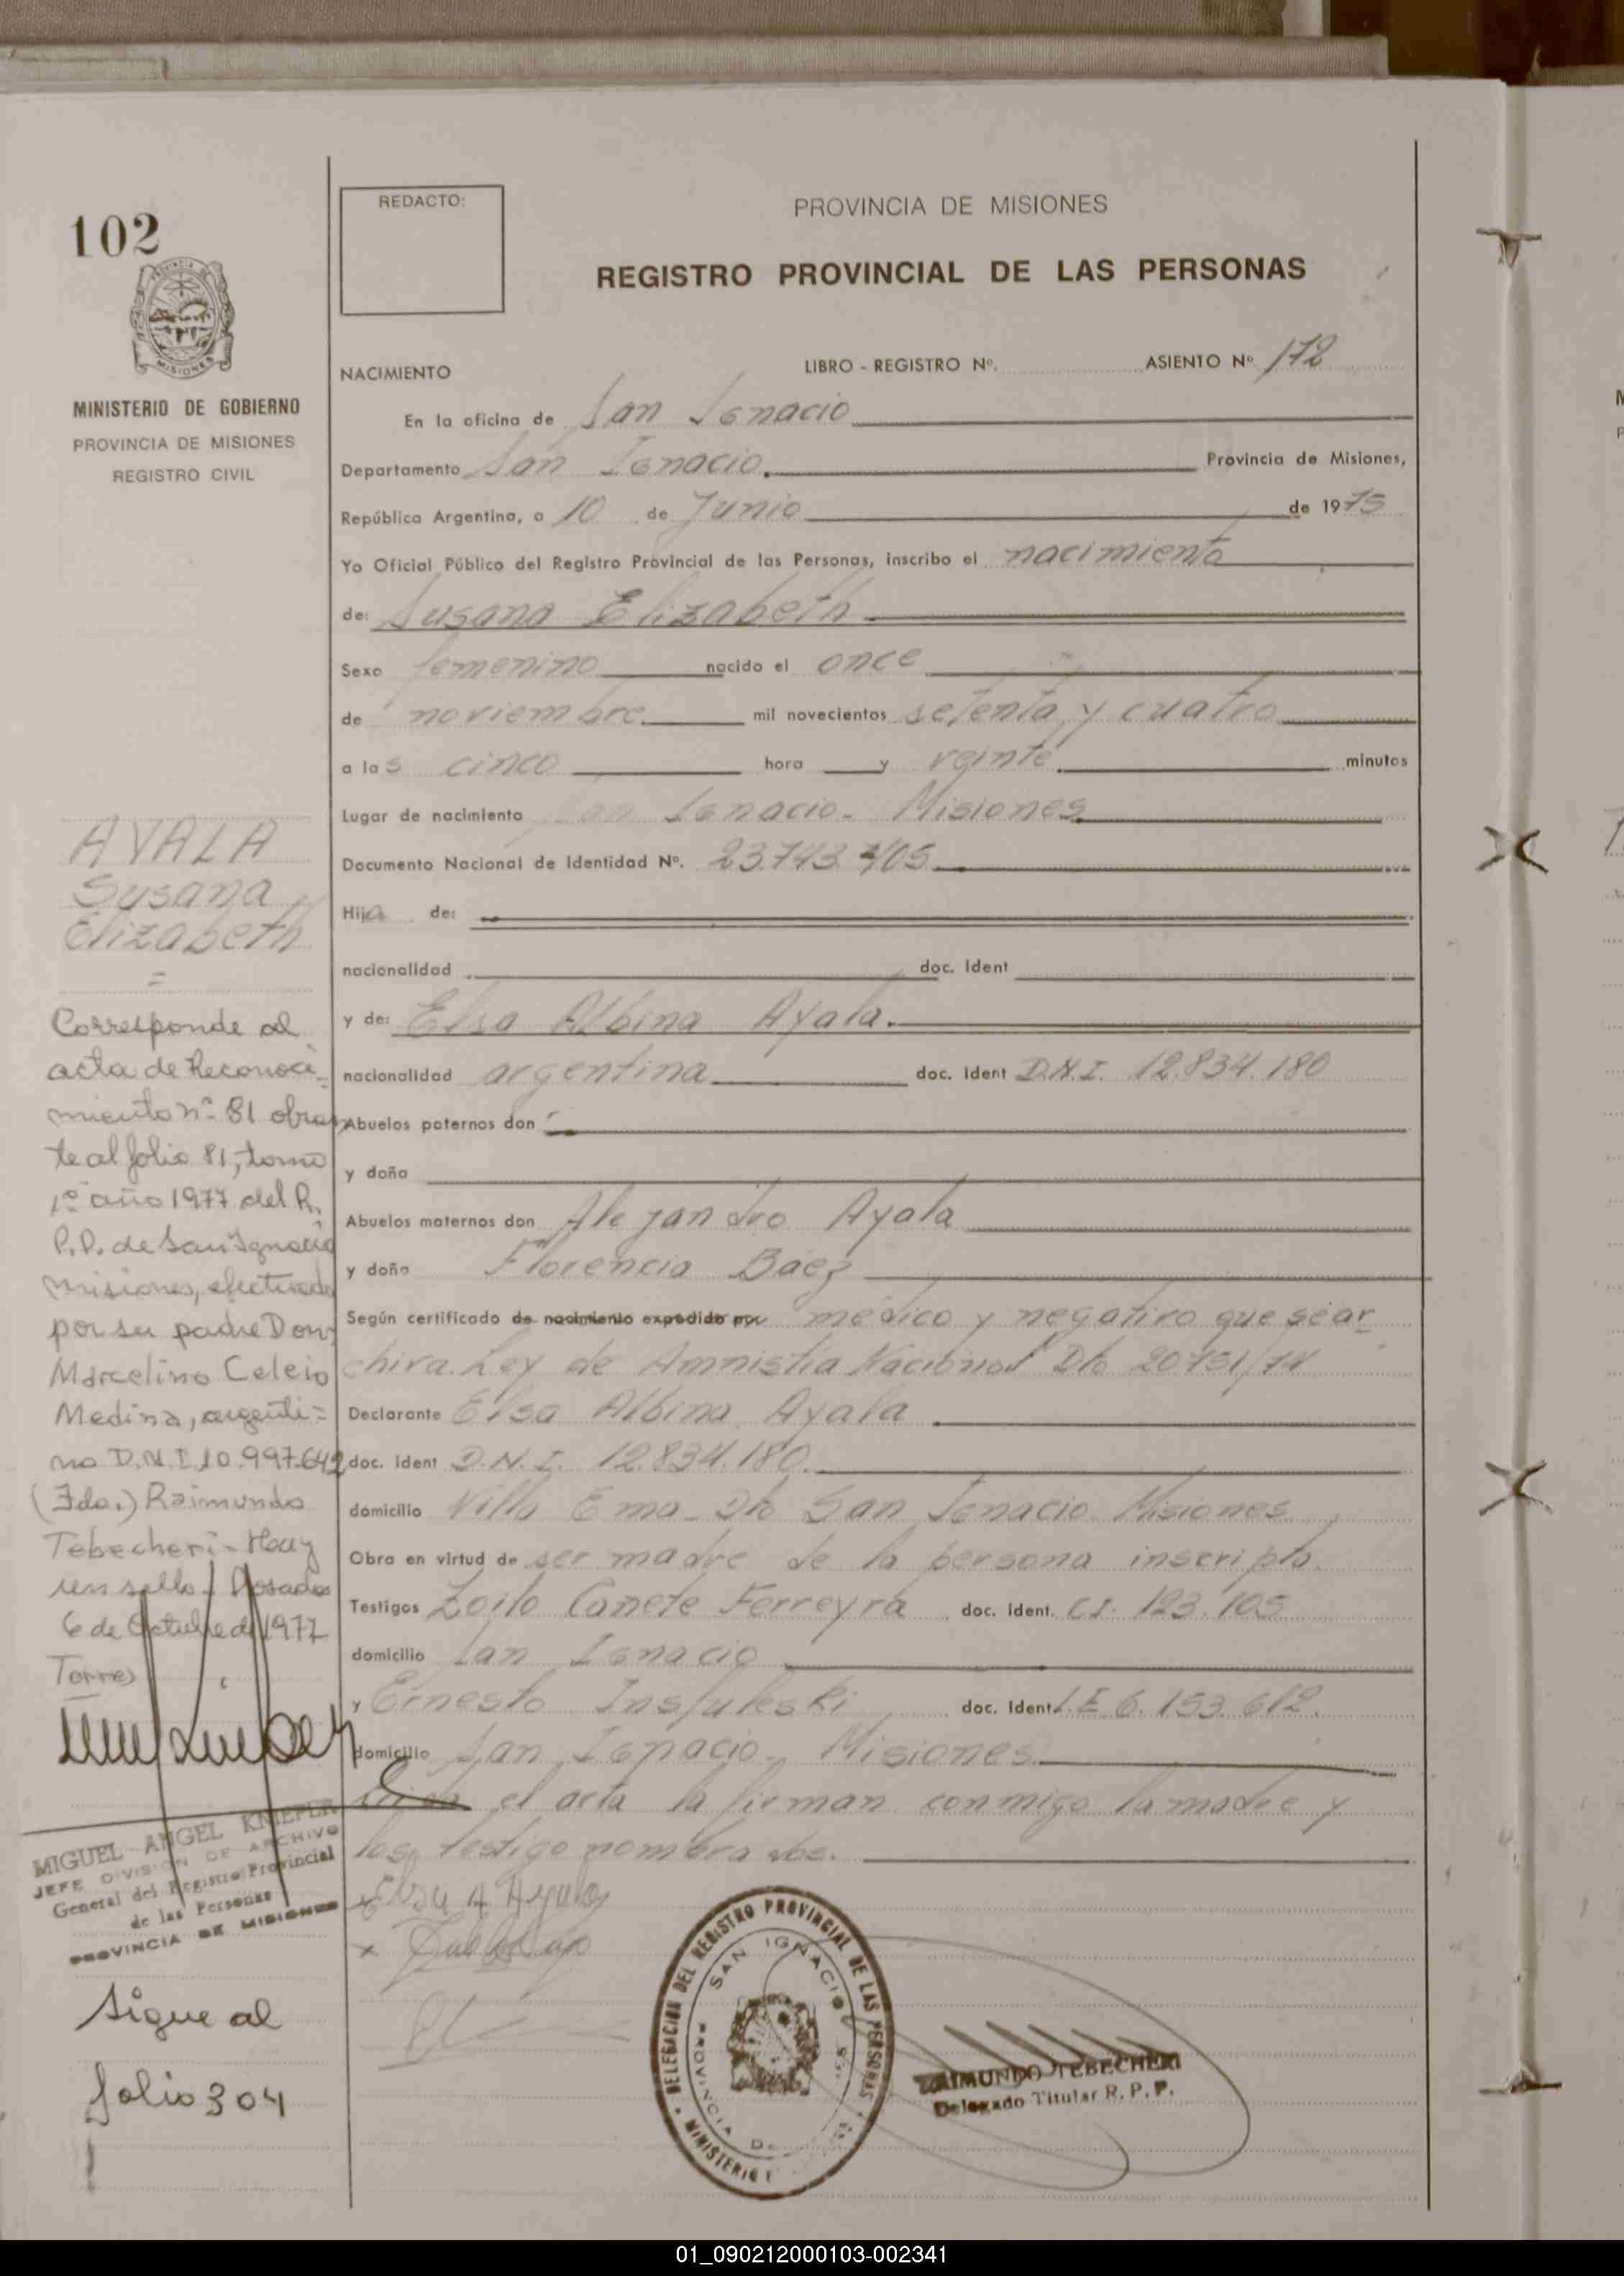 102
MINISTERIO DE GOBIERNO
PROVINCIA DE MISIONES
REGISTRO CIVIL
AYALA
Susana
Elizabeth
=
Corresponde al
acta de Reconoci-
miento nº 81 obran
te al folio 81, tomo
1º año 1977 del R.
P.P. de San Ignacio
misiones, efectuado
por su padre Don
Marcelino Celcio
Medina, argenti=
no D.N.I 10.997.642
(Fdo.) Raimundo
Tebecheri - Hay
un sello - Posadas
6 de Octubre de 1977
Torres
MIGUEL ANGEL KNIEPER
JEFE DIVISION DE ARCHIVO
General del Registro Provincial
de las Personas
PROVINCIA DE MISIONES
Sigue al
folio 304
REDACTO:
PROVINCIA DE MISIONES
REGISTRO PROVINCIAL DE LAS PERSONAS
NACIMIENTO LIBRO - REGISTRO Nº. ASIENTO Nº 172
En la oficina de San Ignacio
Departamento San Ignacio. Provincia de Misiones,
República Argentina, a 10 de Junio de 1975
Yo Oficial Público del Registro Provincial de las Personas, inscribo el nacimiento
de: Susana Elizabeth
Sexo femenino nacido el once
de noviembre mil novecientos setenta y cuatro
a las cinco hora y veinte minutos
Lugar de nacimiento San Ignacio - Misiones
Documento Nacional de Identidad Nº. 23.743.405
Hija de:
nacionalidad doc. Ident
y de: Elsa Albina Ayala.
nacionalidad argentina doc. Ident D.N.I. 12.834.180
Abuelos paternos don
y doña
Abuelos maternos don Alejandro Ayala
y doña Florencia Baez
Según certificado de nacimiento expedido por médico y negativo que se ar
chiva. Ley de Amnistia Nacional 20751/74
Declarante Elsa Albina Ayala
doc. ident D.N.I. 12.834.180.
domicilio Villa Ema - Dto San Ignacio. Misiones
Obra en virtud de ser madre de la persona inscripta.
Testigos Zoilo Cañete Ferreyra doc. ident. C.I. 123.105
domicilio San Ignacio
y Ernesto doc. Ident L.E 6.153.612.
domicilio San Ignacio - Misiones
el acta la firman conmigo la madre y
los testigo nombrados.
Elsa A Ayala
x
DELEGACION DEL REGISTRO PROVINCIAL DE LAS PERSONAS
SAN IGNACIO
PROVINCIA DE
MINISTERIO
RAIMUNDO TEBECHERI
Delegado Titular R. P. P.
01_090212000103-002341